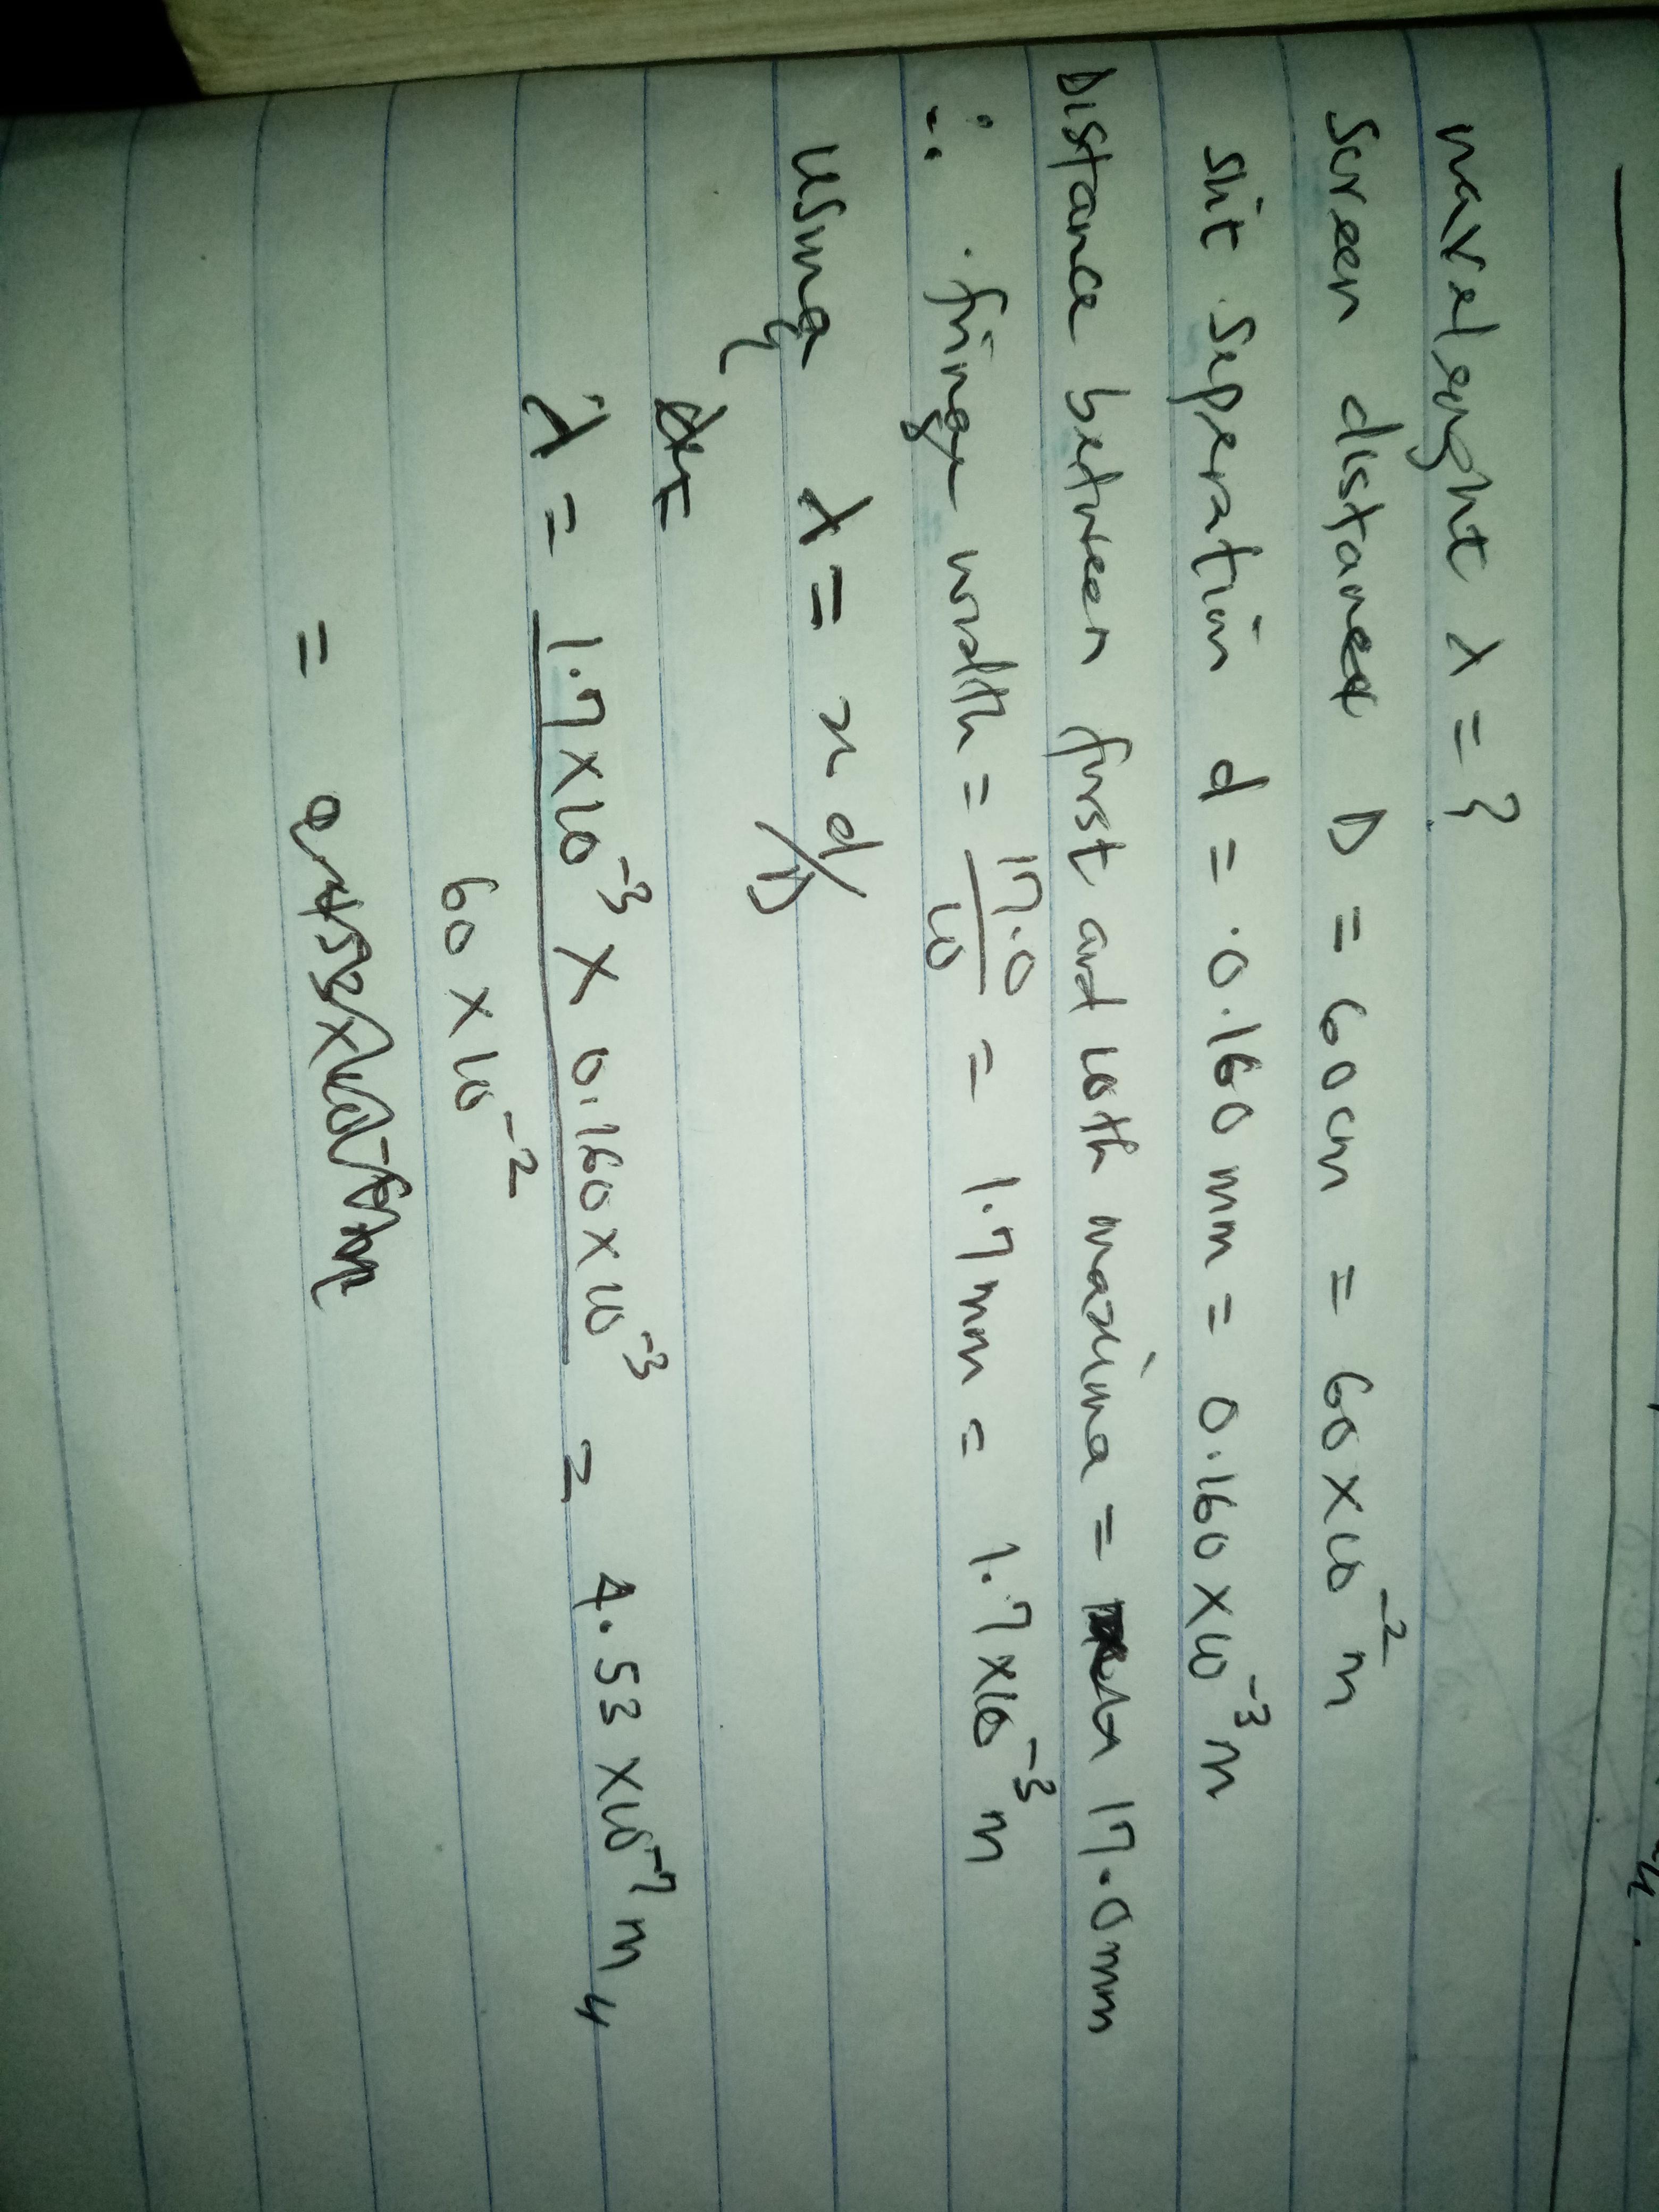 wavelenght λ = ?
Screen distance D = 60cm = 60 × 10⁻² m
slit seperation d = 0.160 mm = 0.160 × 10⁻³ m
Distance between first and 10th maxima = 17.0mm
∴ fringe width = 17.0/10 = 1.7mm = 1.7 × 10⁻³ m
using λ = x d/D
λ = 1.7 × 10⁻³ × 0.160 × 10⁻³ = 4.53 × 10⁻⁷ m
60 × 10⁻²
=